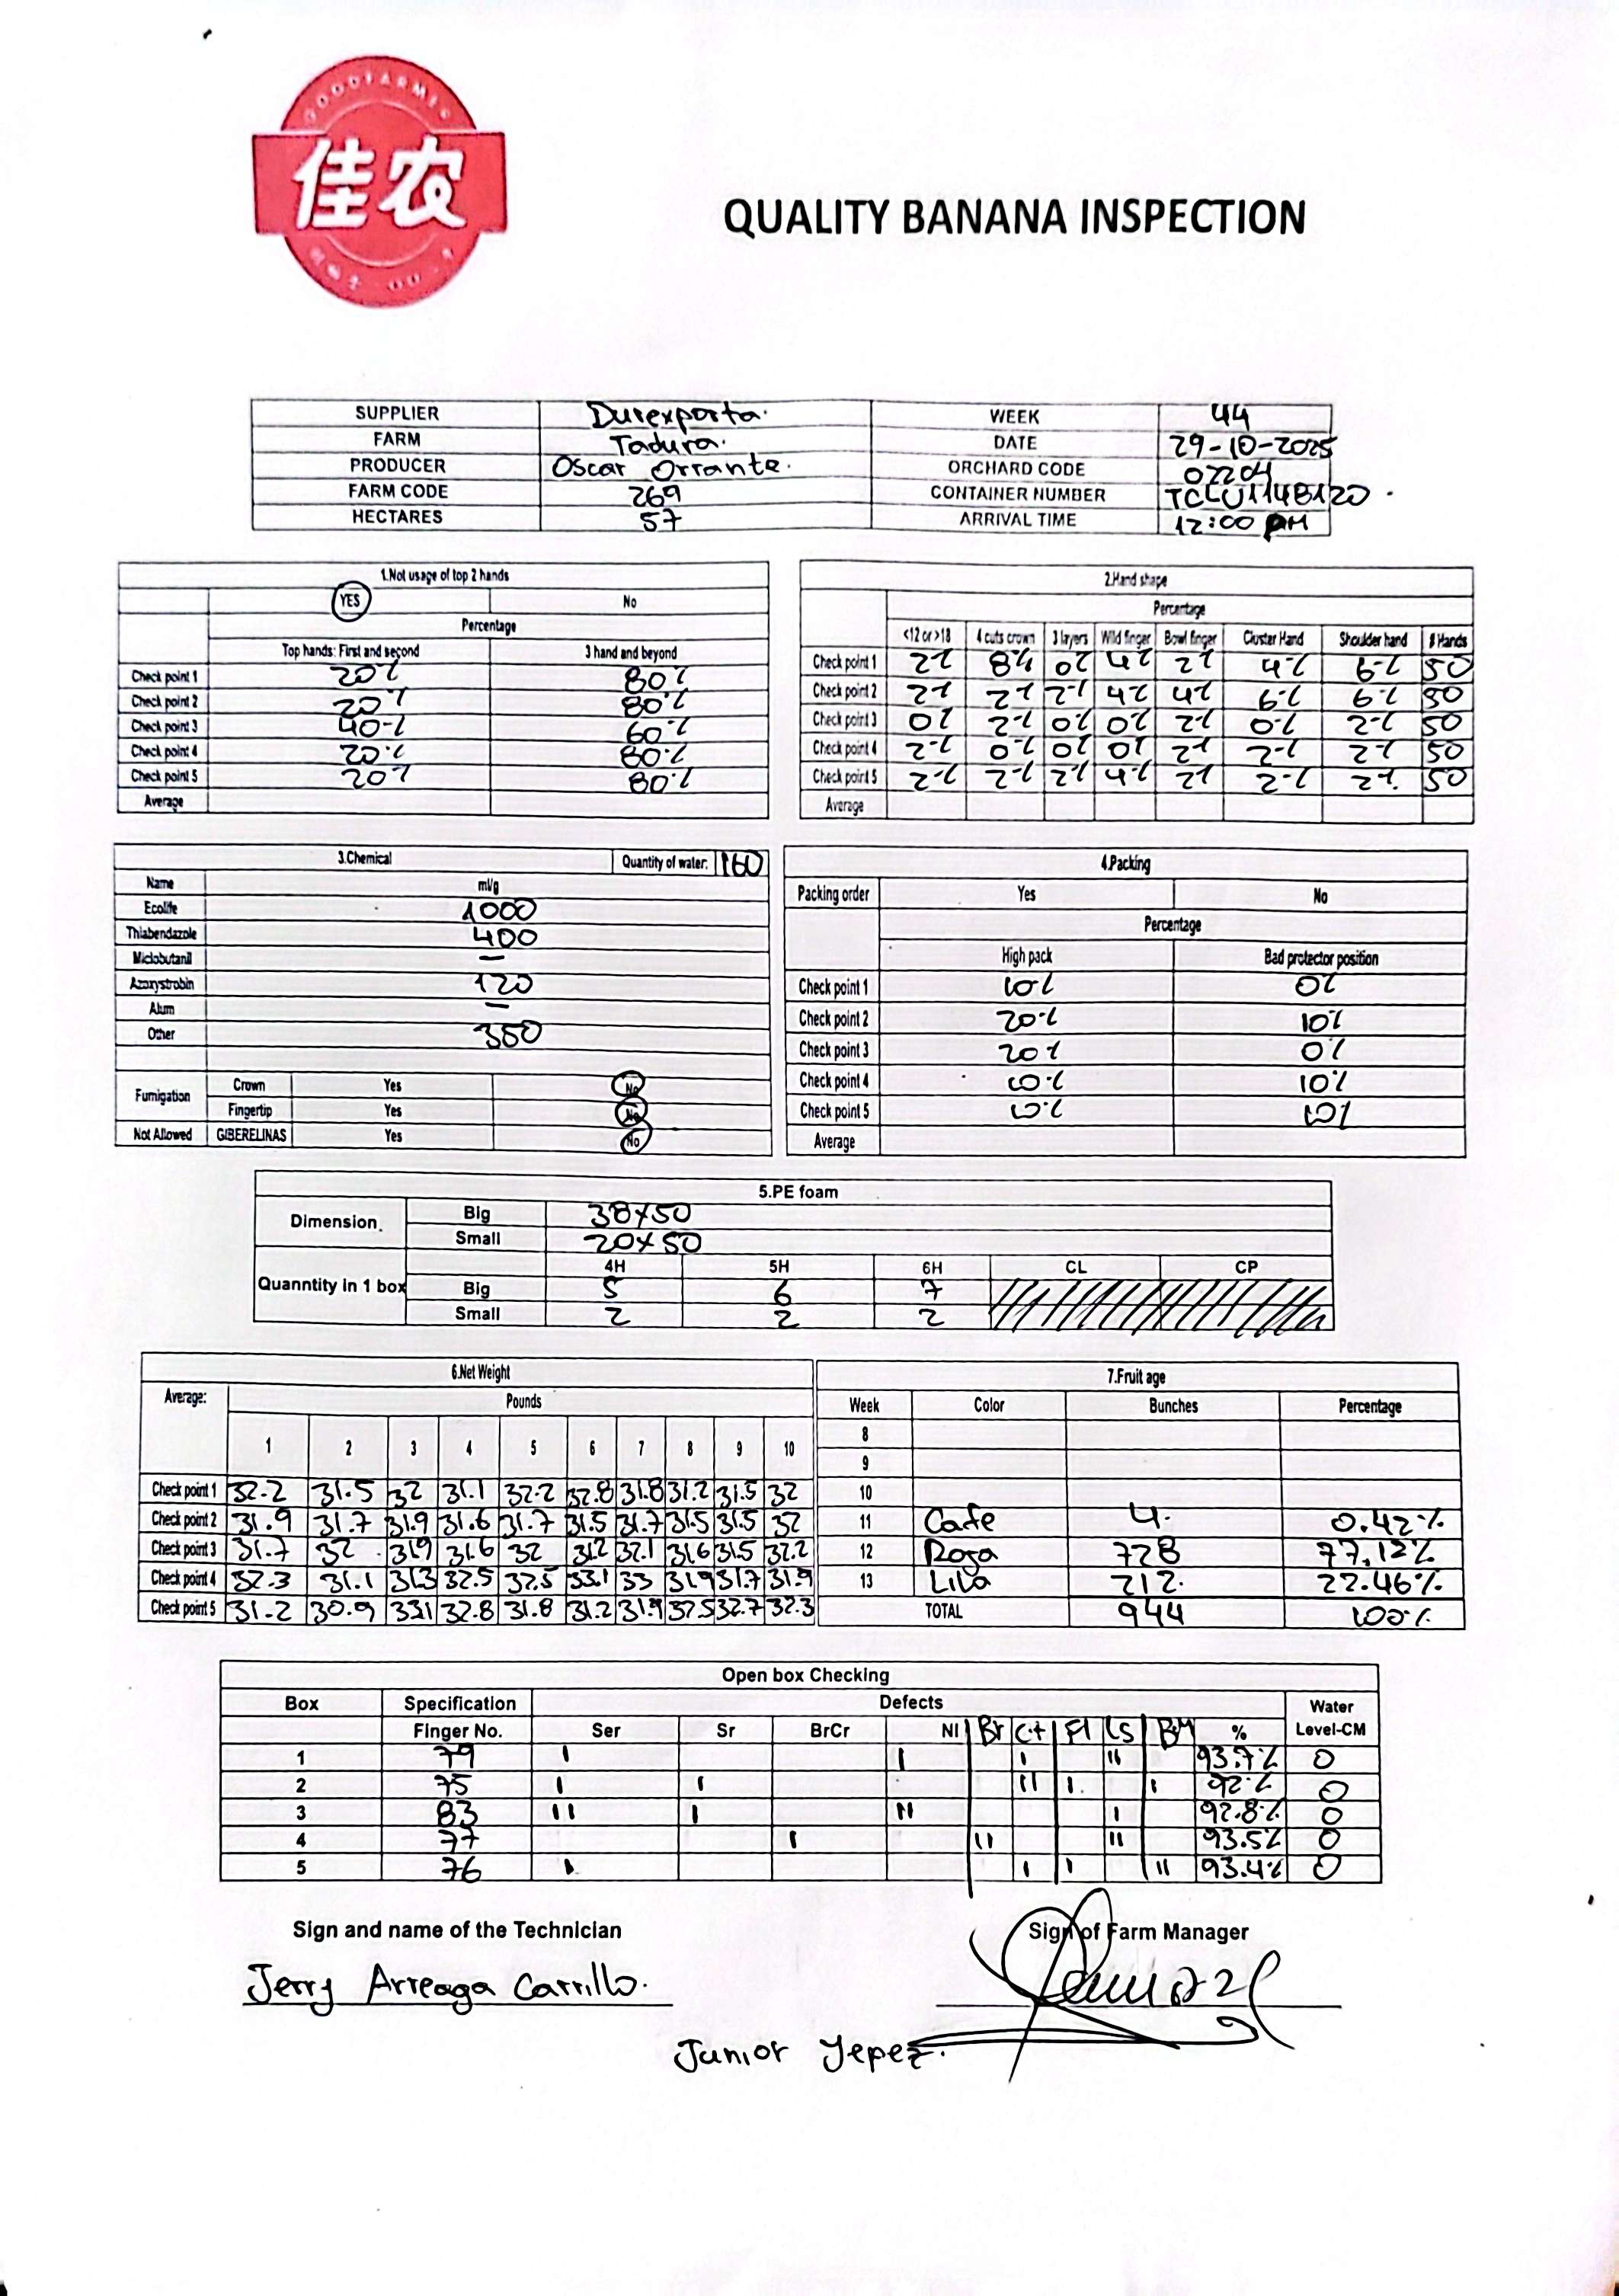 GOODFARMER
佳农
QUALITY BANANA INSPECTION
SUPPLIER Durexporta. WEEK 44
FARM Tadura. DATE 29-10-2025
PRODUCER Oscar Orrante. ORCHARD CODE 02204
FARM CODE 269 CONTAINER NUMBER TCLU1148120.
HECTARES 57 ARRIVAL TIME 12:00 PM
1.Not usage of top 2 hands
YES No
Percentage
Top hands: First and second 3 hand and beyond
Check point 1 20% 80%
Check point 2 20% 80%
Check point 3 40% 60%
Check point 4 20% 80%
Check point 5 20% 80%
Average
2.Hand shape
Percentage
<12 or >18 4 cuts crown 3 layers Wild finger Bowl finger Cluster Hand Shoulder hand # Hands
Check point 1 2% 8% 0% 4% 2% 4% 6% 50
Check point 2 2% 2% 2% 4% 4% 6% 6% 50
Check point 3 0% 2% 0% 0% 2% 0% 2% 50
Check point 4 2% 0% 0% 0% 2% 2% 2% 50
Check point 5 2% 2% 2% 4% 2% 2% 2% 50
Average
3.Chemical Quantity of water: 160
Name ml/g
Ecolife 1000
Thiabendazole 400
Miclobutanil —
Azoxystrobin 120
Alum —
Other 350
Fumigation Crown Yes No
Fingertip Yes No
Not Allowed GIBERELINAS Yes No
4.Packing
Packing order Yes No
Percentage
High pack Bad protector position
Check point 1 10% 0%
Check point 2 20% 10%
Check point 3 20% 0%
Check point 4 10% 10%
Check point 5 10% 10%
Average
5.PE foam
Dimension. Big 38x50
Small 20x50
4H 5H 6H CL CP
Quanntity in 1 box Big 5 6 7
Small 2 2 2
6.Net Weight
Average: Pounds
1 2 3 4 5 6 7 8 9 10
Check point 1 32.2 31.5 32 31.1 32.2 32.8 31.8 31.2 31.5 32
Check point 2 31.9 31.7 31.9 31.6 31.7 31.5 31.7 31.5 31.5 32
Check point 3 31.7 32 31.9 31.6 32 31.2 32.1 31.6 31.5 32.2
Check point 4 32.3 31.1 31.3 32.5 32.5 33.1 33 31.9 31.7 31.9
Check point 5 31.2 30.9 33.1 32.8 31.8 31.2 31.9 32.5 32.7 32.3
7.Fruit age
Week Color Bunches Percentage
8
9
10
11 Cafe 4. 0.42%
12 Roja 728 77.12%
13 Lila 212. 22.46%
TOTAL 944 100%
Open box Checking
Box Specification Defects Water
Finger No. Ser Sr BrCr NI Br Ct Fl LS BM % Level-CM
1 79 I I I II 93.7% 0
2 75 I I II I I 92% 0
3 83 II I II I 92.8% 0
4 77 I II II 93.5% 0
5 76 I I I II 93.4% 0
Sign and name of the Technician Sign of Farm Manager
Jerry Arreaga Carrillo.
Junior Yepez.